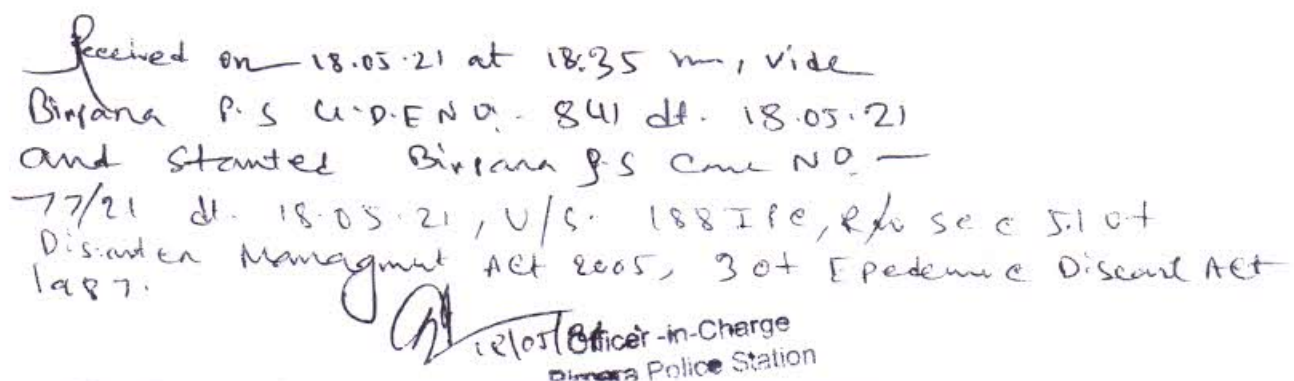 Received on 18.05.21 at 18.35 hrs, vide
Birpara P.S G.D.E NO. 841 dt. 18.05.21
and started Birpara P.S Case NO. —
77/21 dt. 18.05.21, U/S. 188 IPC, R/w sec 51 of
Disaster Managmut Act 2005, 3 of Epedemic Diseas Act
1987.
18/05/21 Officer-in-Charge
Birpara Police Station